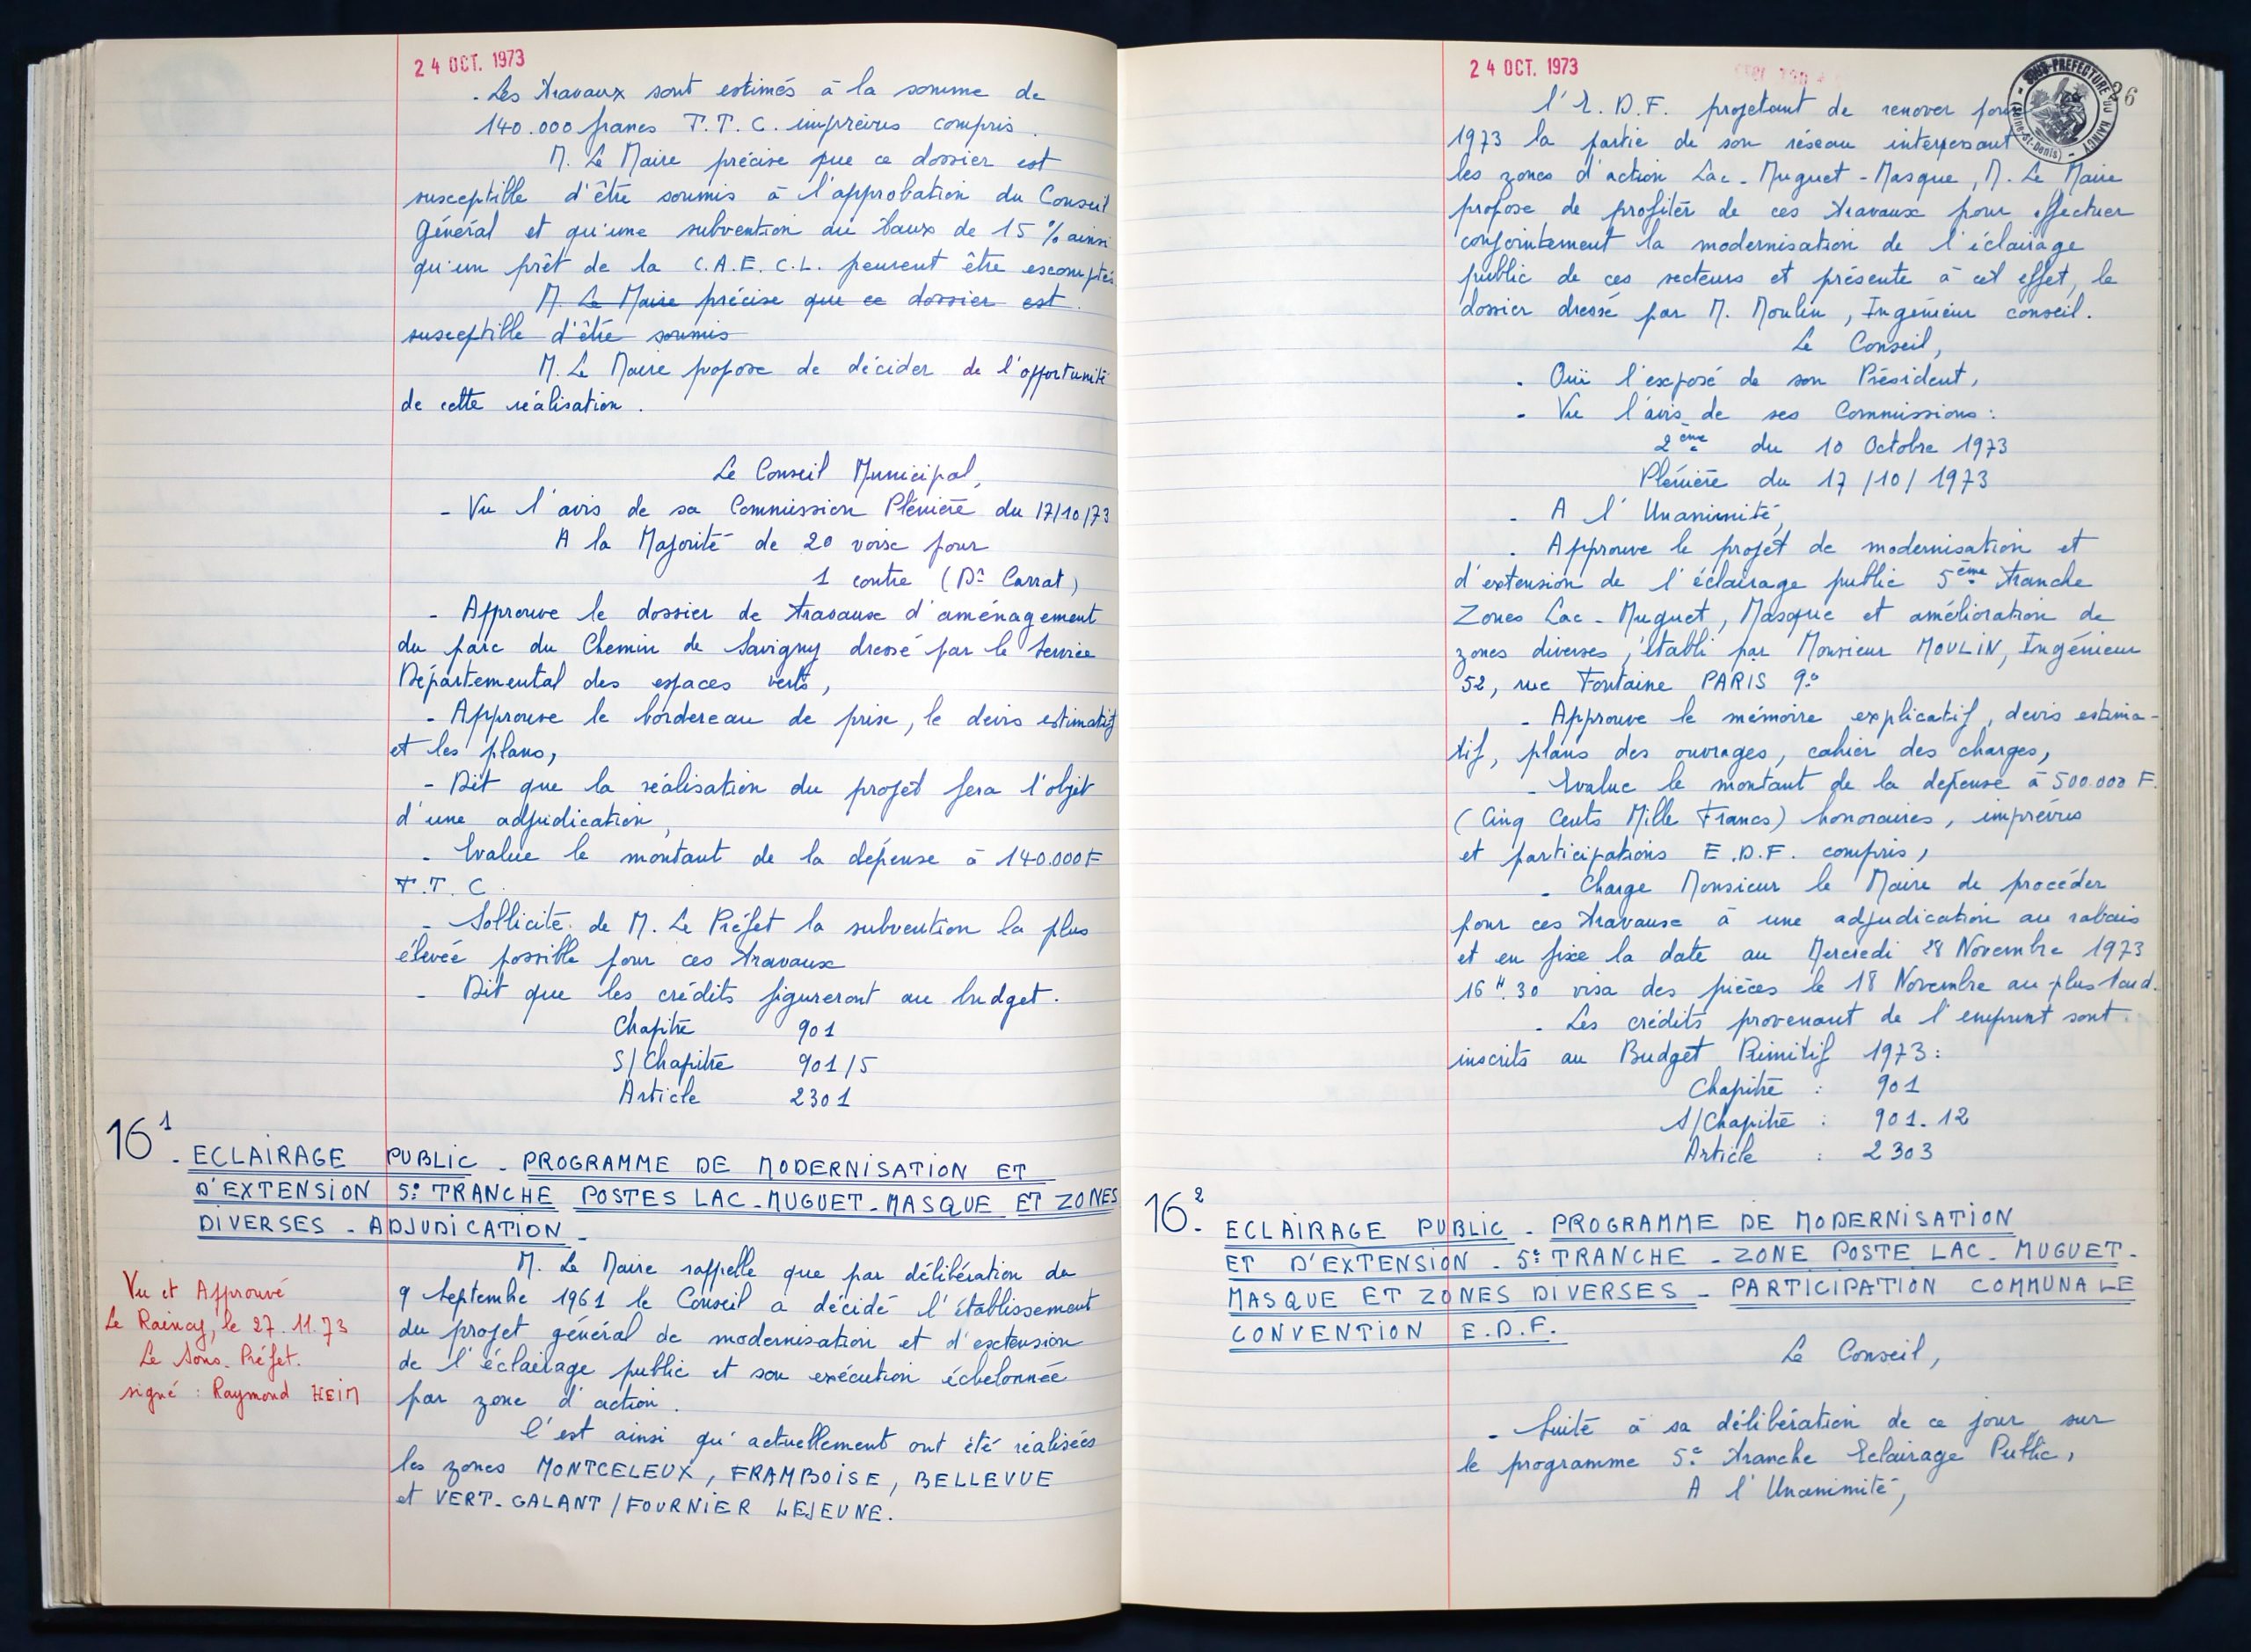 24 OCT. 1973
. Les travaux sont estimés à la somme de
140.000 francs T.T.C. imprévus compris.
M. Le Maire précise que ce dossier est
susceptible d'être soumis à l'approbation du Conseil
Général et qu'une subvention au taux de 15 % ainsi
qu'un prêt de la C.A.E.C.L. peuvent être escomptés
M. Le Maire précise que ce dossier est
susceptible d'être soumis
M. Le Maire propose de décider de l'opportunité
de cette réalisation.
Le Conseil Municipal,
- Vu l'avis de sa Commission Plénière du 17/10/73
A la Majorité de 20 voix pour
1 contre (Dr Carrat)
- Approuve le dossier de travaux d'aménagement
du parc du Chemin de Savigny dressé par le Service
Départemental des espaces verts,
- Approuve le bordereau de prix, le devis estimatif
et les plans,
- Dit que la réalisation du projet fera l'objet
d'une adjudication,
- Evalue le montant de la dépense à 140.000 F
T.T.C.
- Sollicite de M. Le Préfet la subvention la plus
élevée possible pour ces travaux
- Dit que les crédits figureront au budget.
Chapitre 901
S/Chapitre 901/5
Article 2301
16 1 - ECLAIRAGE PUBLIC - PROGRAMME DE MODERNISATION ET
D'EXTENSION 5e TRANCHE POSTES LAC-MUGUET-MASQUE ET ZONES
DIVERSES - ADJUDICATION -
M. Le Maire rappelle que par délibération du
9 Septembre 1961 le Conseil a décidé l'établissement
du projet général de modernisation et d'extension
de l'éclairage public et son exécution échelonnée
par zone d'action.
C'est ainsi qu'actuellement ont été réalisées
les zones MONTCELEUX, FRAMBOISE, BELLEVUE
et VERT-GALANT/FOURNIER LEJEUNE.
Vu et Approuvé
Le Raincy, le 27.11.73
Le Sous-Préfet.
signé : Raymond HEIM
24 OCT. 1973
SOUS-PREFECTURE DU RAINCY - (Seine-St-Denis) -
26
l'E.D.F. projetant de renover pour
1973 la partie de son réseau interessant
les zones d'action Lac-Muguet-Masque, M. Le Maire
propose de profiter de ces travaux pour effectuer
conjointement la modernisation de l'éclairage
public de ces secteurs et présente à cet effet, le
dossier dressé par M. Moulin, Ingénieur conseil.
Le Conseil,
. Ouï l'exposé de son Président,
- Vu l'avis de ses Commissions :
2ème du 10 Octobre 1973
Plénière du 17/10/1973
. A l'Unanimité,
. Approuve le projet de modernisation et
d'extension de l'éclairage public 5ème tranche
Zones Lac-Muguet, Masque et amélioration de
zones diverses, établi par Monsieur MOULIN, Ingénieur
52, rue Fontaine PARIS 9e
- Approuve le mémoire explicatif, devis estima-
tif, plans des ouvrages, cahier des charges,
- Evalue le montant de la dépense à 500.000 F.
(Cinq Cents Mille Francs) honoraires, imprévus
et participations E.D.F. compris,
- Charge Monsieur le Maire de procéder
pour ces travaux à une adjudication au rabais
et en fixe la date au Mercredi 28 Novembre 1973
16 H.30 visa des pièces le 18 Novembre au plus tard.
- Les crédits provenant de l'emprunt sont
inscrits au Budget Primitif 1973 :
Chapitre : 901
S/Chapitre : 901.12
Article : 2303
16 2 - ECLAIRAGE PUBLIC - PROGRAMME DE MODERNISATION
ET D'EXTENSION - 5e TRANCHE - ZONE POSTE LAC-MUGUET-
MASQUE ET ZONES DIVERSES - PARTICIPATION COMMUNALE
CONVENTION E.D.F.
Le Conseil,
- Suite à sa délibération de ce jour sur
le programme 5e tranche Eclairage Public,
A l'Unanimité,